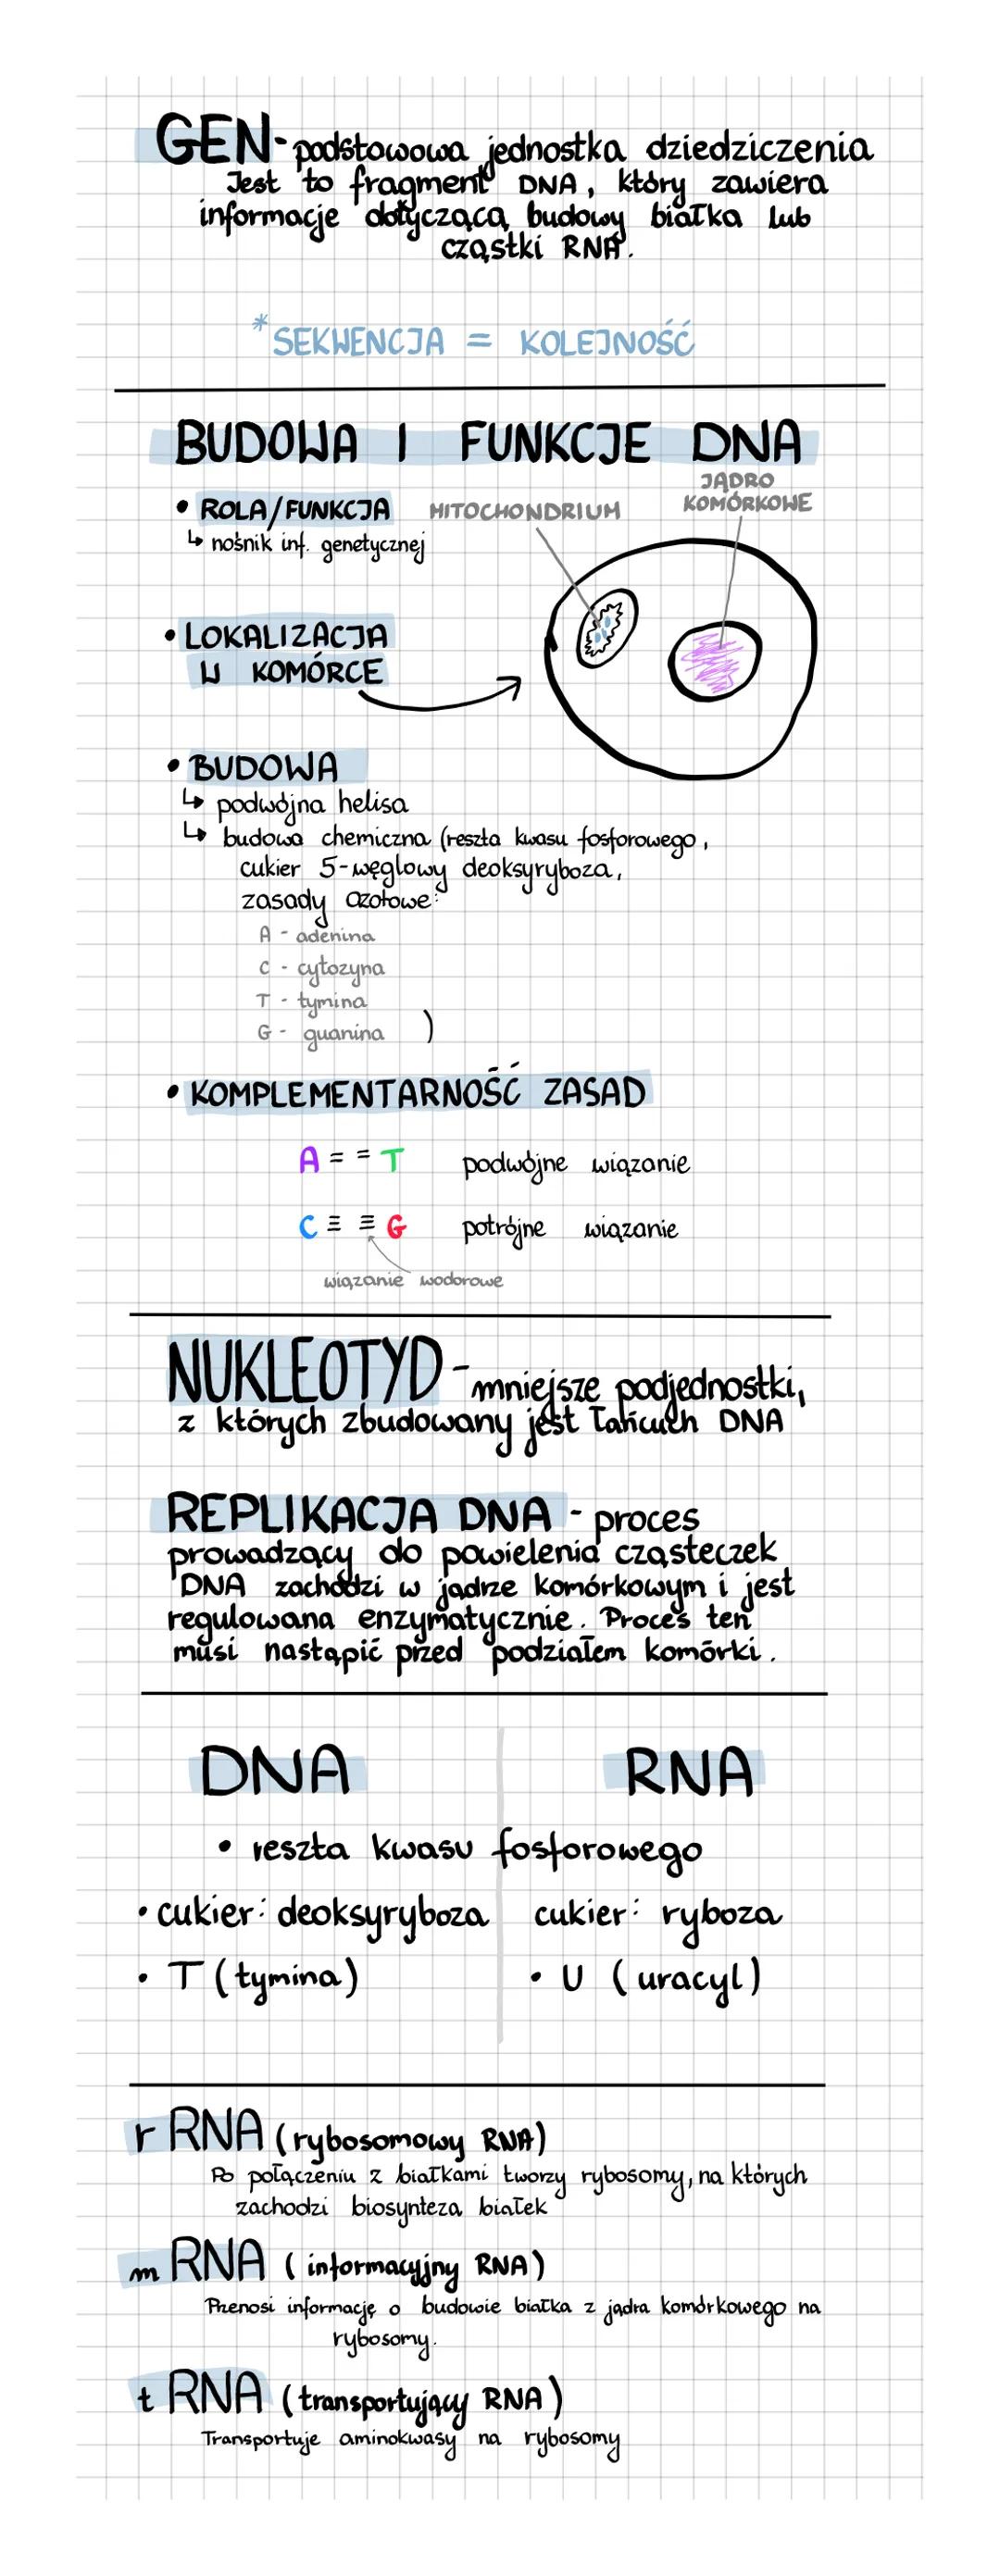 GEN - podstawowa jednostka dziedziczenia
Jest to fragment DNA, który zawiera
informacje dotyczącą budowy białka lub
cząstki RNA.
*SEKWENCJA = KOLEJNOŚĆ
BUDOWA I FUNKCJE DNA
• ROLA/FUNKCJA
↳ nośnik inf. genetycznej
MITOCHONDRIUM
JĄDRO
KOMÓRKOWE
• LOKALIZACJA
W KOMÓRCE
• BUDOWA
↳ podwójna helisa
↳ budowa chemiczna (reszta kwasu fosforowego,
cukier 5-węglowy deoksyryboza,
zasady azotowe:
A - adenina
C - cytozyna
T - tymina
G - guanina )
• KOMPLEMENTARNOŚĆ ZASAD
A = = T podwójne wiązanie
C ≡ ≡ G potrójne wiązanie
wiązanie wodorowe
NUKLEOTYD - mniejsze podjednostki,
z których zbudowany jest łańcuch DNA
REPLIKACJA DNA - proces
prowadzący do powielenia cząsteczek
DNA zachodzi w jądrze komórkowym i jest
regulowana enzymatycznie. Proces ten
musi nastąpić przed podziałem komórki.
DNA RNA
• reszta kwasu fosforowego
• cukier: deoksyryboza cukier: ryboza
• T (tymina) • U (uracyl)
rRNA (rybosomowy RNA)
Po połączeniu z białkami tworzy rybosomy, na których
zachodzi biosynteza białek
mRNA (informacyjny RNA)
Przenosi informację o budowie białka z jądra komórkowego na
rybosomy.
tRNA (transportujący RNA)
Transportuje aminokwasy na rybosomy